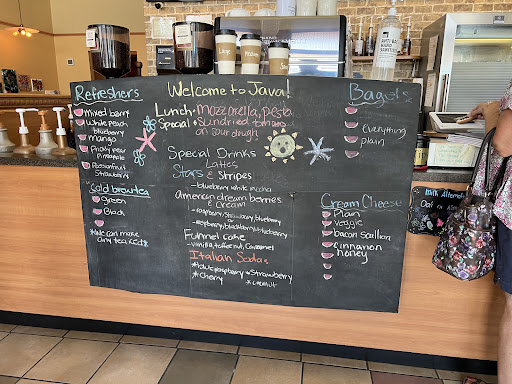 Refreshers
mixed berry
white peach
blueberry
mango
prickly pear
pineapple
Passionfruit
Strawberry
Cold brew tea
green
Black
*We can make
any tea iced*
Welcome to Java!
Lunch - mozzorella, pesto
Special * Sundried tomatoes
on sourdough
Special Drinks
Lattes
Stars & Stripes
- blueberry white mocha
American dream berries
& Cream
- raspberry, strawberry, blueberry
or
Funnel cake
- vanilla, toffee nut, caramel
Italian Sodas
*Strawberry
*Cherry
Bagels
Everything
plain
Cream Cheese
Plain
veggie
bacon scallion
cinnamon
honey
Milk Alternat